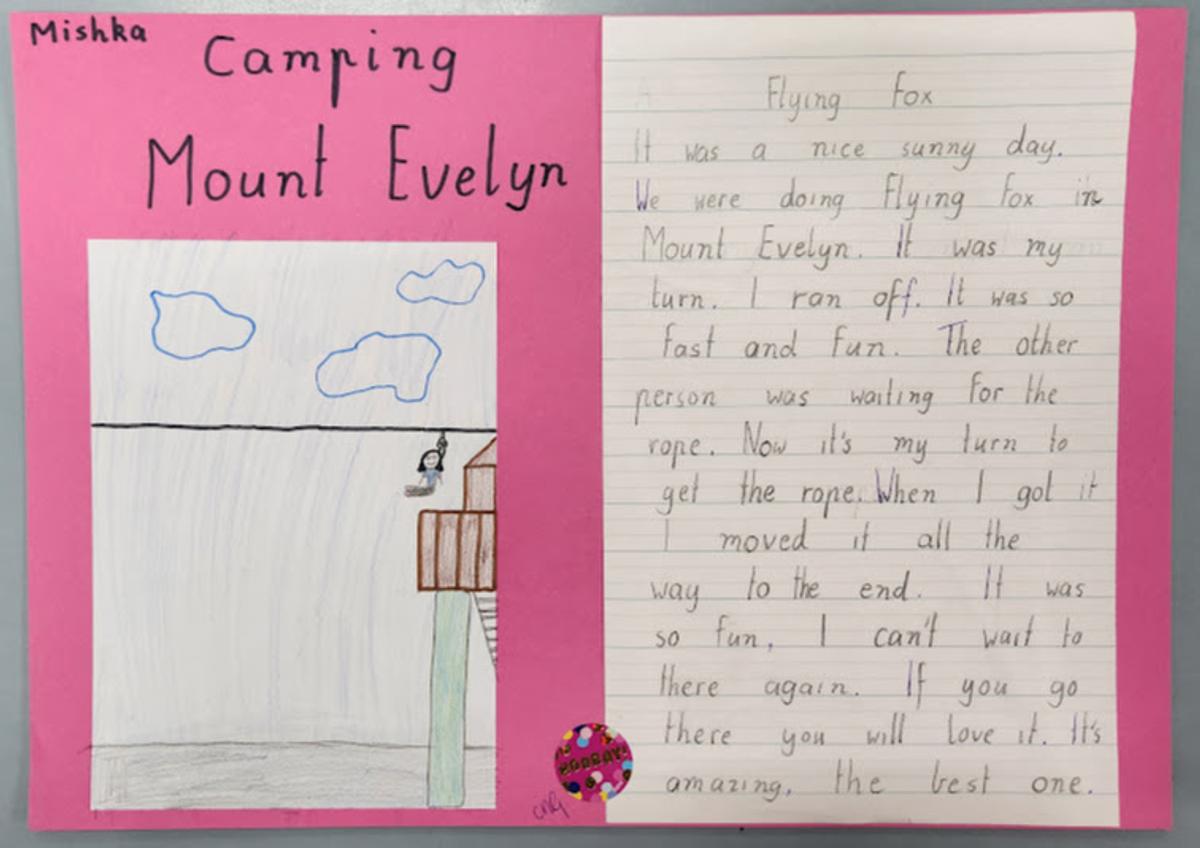 Mishka
Camping
Mount Evelyn
Flying Fox
It was a nice sunny day.
We were doing Flying Fox in
Mount Evelyn. It was my
turn. I ran off. It was so
fast and fun. The other
person was waiting for the
rope. Now it's my turn to
get the rope. When I got it
I moved it all the
way to the end. It was
so fun, I can't wait to
there again. If you go
there you will love it. It's
amazing, the best one.
HOORAY!